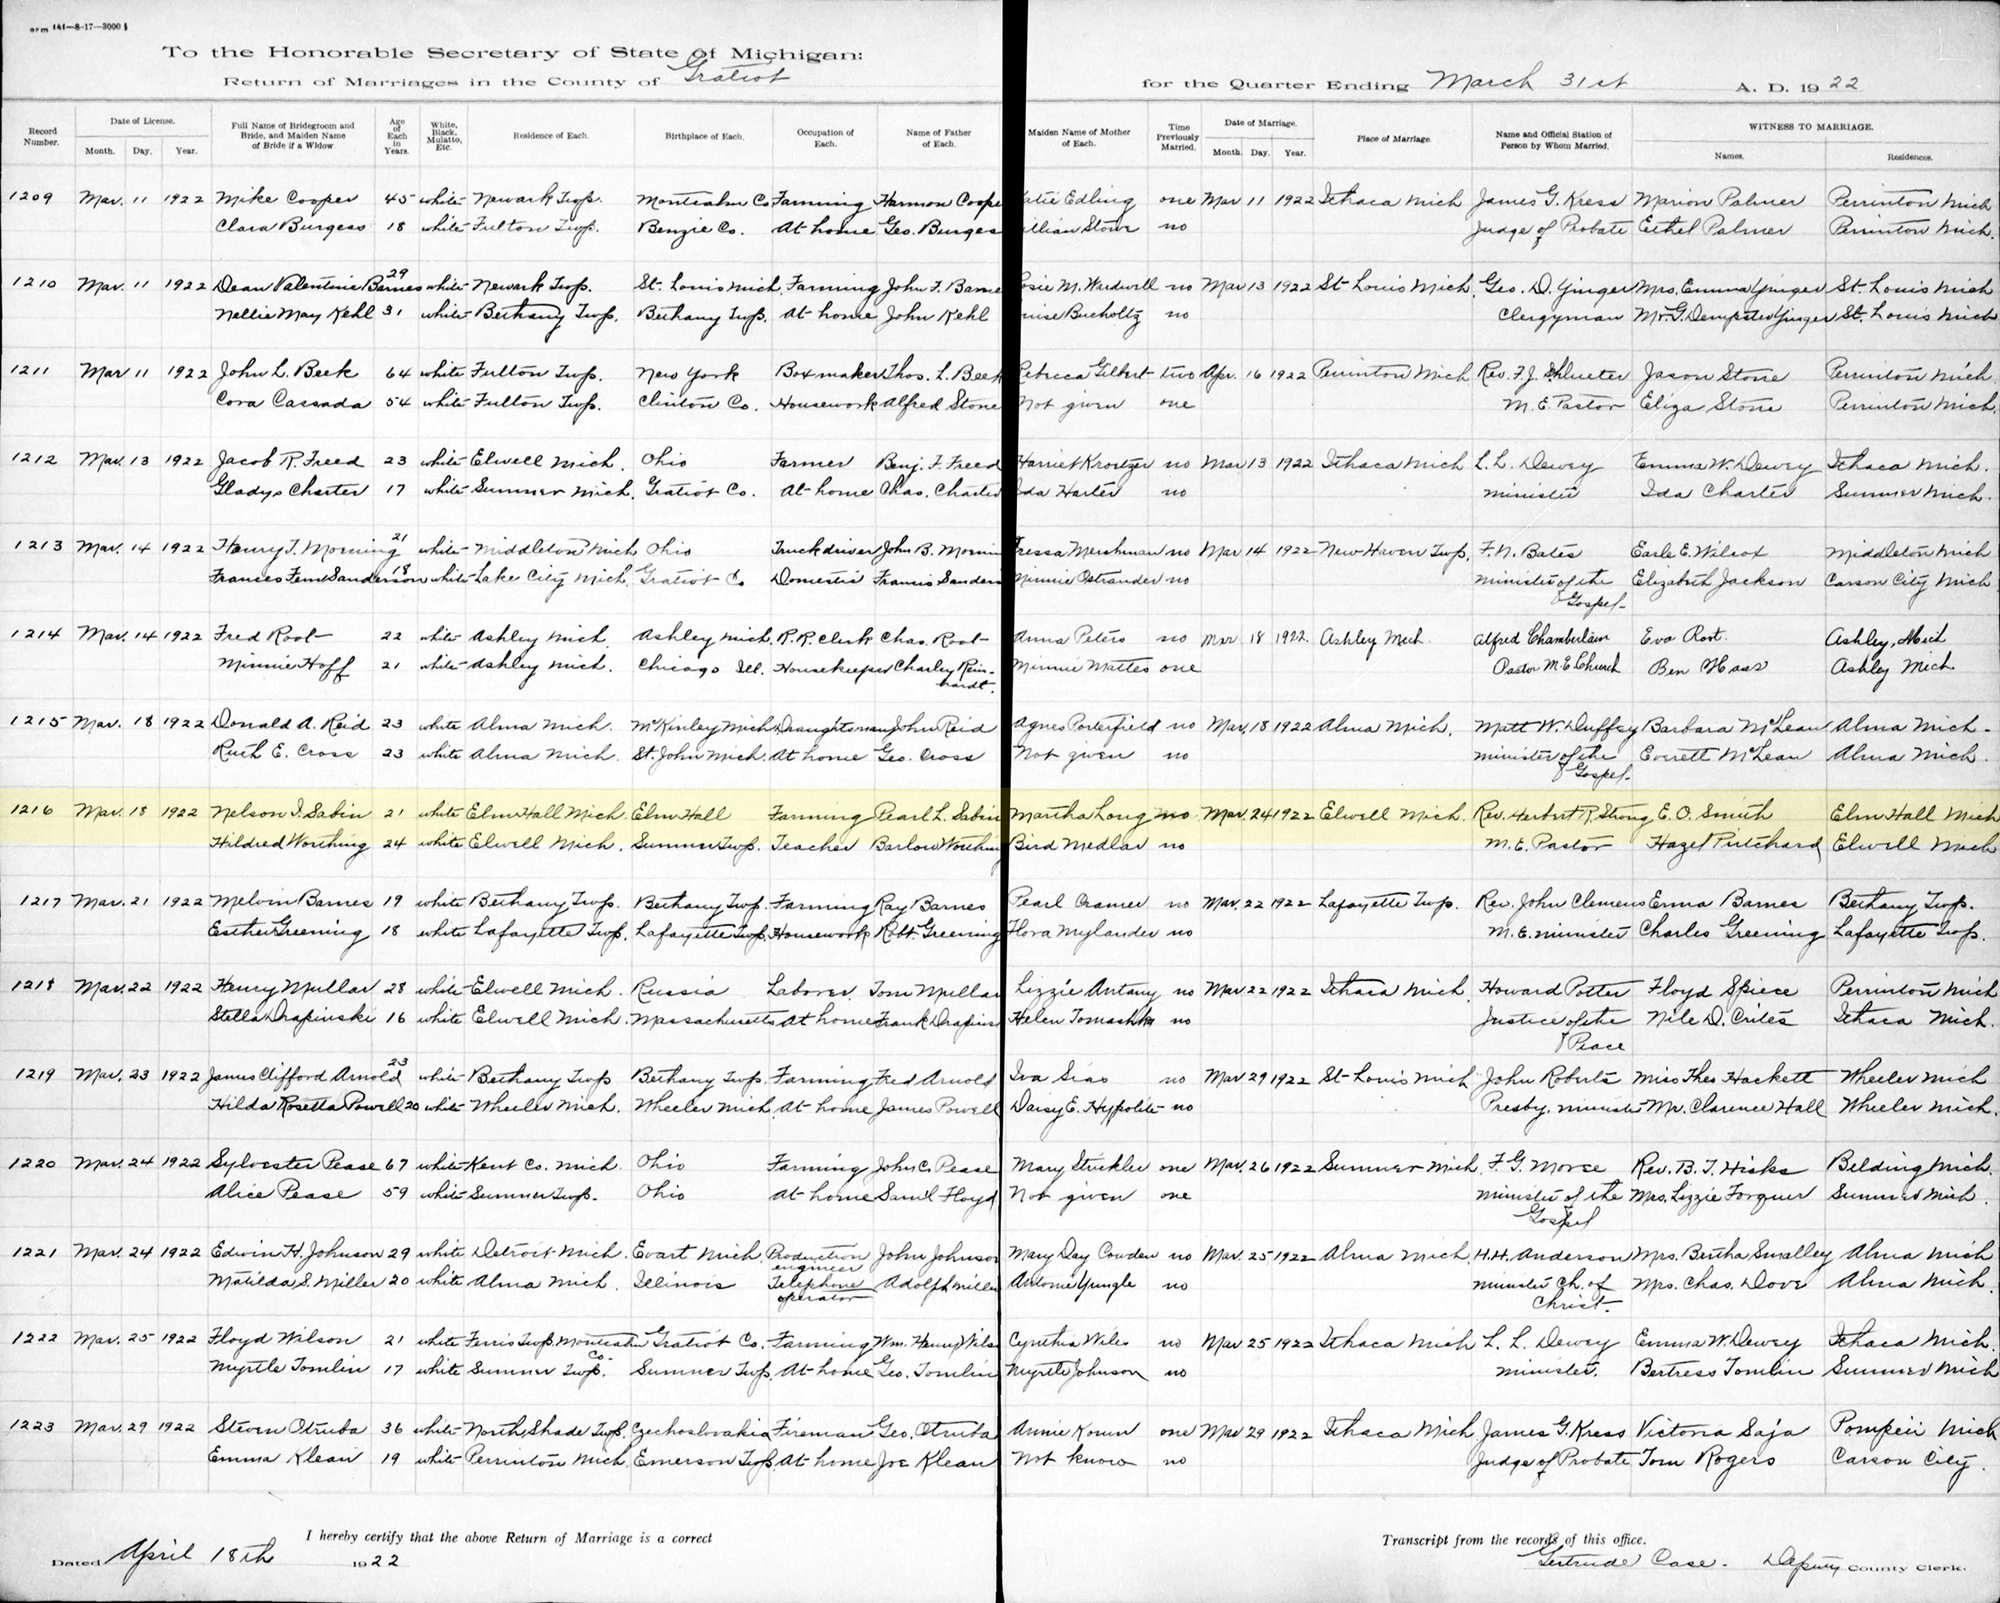 To the Honorable Secretary of State of Michigan:
Return of Marriages in the County of Gratiot for the Quarter Ending March 31st A. D. 1922
Record Number. Date of License. Month. Day. Year. Full Name of Bridegroom and Bride, and Maiden Name of Bride if a Widow. Age of Each in Years. White, Black, Mulatto, Etc. Residence of Each. Birthplace of Each. Occupation of Each. Name of Father of Each. Maiden Name of Mother of Each. Time Previously Married. Date of Marriage. Month. Day. Year. Place of Marriage. Name and Official Station of Person by Whom Married. WITNESS TO MARRIAGE. Names. Residences.
1209 Mar. 11 1922 Mike Cooper 45 white Newark Twp. Montcalm Co. Farming Harmon Coope atie Edling one Mar 11 1922 Ithaca Mich James G. Kress Marion Palmer Perrinton Mich
Clara Burgess 18 white Fulton Twp. Benzie Co. At home Geo. Burges illian Stowe no Judge of Probate Ethel Palmer Perrinton Mich.
1210 Mar. 11 1922 Dean Valentine Barnes 29 white Newark Twp. St. Louis Mich. Farming John F. Barne osie M. Wardwell no Mar 13 1922 St Louis Mich. Geo. D. Yinger Mrs. Emma Yinger St. Louis Mich
Nellie May Kehl 31 white Bethany Twp. Bethany Twp. At home John Kehl uise Bucholtz no Clergyman Mr. G. Dempster Yinger St. Louis Mich
1211 Mar 11 1922 John L. Beek 64 white Fulton Twp. New York Boxmaker Thos. L. Beek Rebecca Gilbert two Apr. 16 1922 Perrinton Mich Rev. F. J. Schlueter Jason Stone Perrinton Mich.
Cora Cassada 54 white Fulton Twp. Clinton Co. Housework Alfred Stone Not given one M. E. Pastor Eliza Stone Perrinton Mich.
1212 Mar. 13 1922 Jacob R. Freed 23 white Elwell Mich. Ohio Farmer Benj. F. Freed Harriet Kroetzer no Mar 13 1922 Ithaca Mich L. L. Dewey Emma W. Dewey Ithaca Mich.
Gladys Charter 17 white Sumner Mich. Gratiot Co. At home Chas. Charter Ida Harter no minister Ida Charter Sumner Mich.
1213 Mar. 14 1922 Henry T. Morning 21 white Middleton Mich Ohio Truckdriver John B. Mornin ressa Mershman no Mar 14 1922 New Haven Twp. F. N. Bates Earle E. Wilcox Middleton Mich
Frances Fern Sanderson 18 white Lake City Mich. Gratiot Co Domestic Francis Sanders Minnie Ostrander no minister of the Elizabeth Jackson Carson City Mich
Gospel.
1214 Mar. 14 1922 Fred Root 22 white Ashley Mich. Ashley Mich. R.R. Clerk Chas. Root Anna Peters no Mar 18 1922. Ashley Mich. Alfred Chamberlain Eva Root. Ashley, Mich
Minnie Hoff 21 white Ashley Mich. Chicago Ill. Housekeeper Charley Rein- Minnie Mattes one Pastor M.E. Church Ben Hass Ashley Mich
hardt.
1215 Mar. 18 1922 Donald A. Reid 23 white Alma Mich. McKinley Mich Draughtsman John Reid Agnes Porterfield no Mar. 18 1922 Alma Mich. Matt W. Duffey Barbara McLean Alma Mich.
Ruth E. Cross 23 white Alma Mich. St. John Mich. At home Geo. Cross Not given no minister of the Everett McLean Alma Mich.
Gospel.
1216 Mar. 18 1922 Nelson I. Sabin 21 white Elm Hall Mich. Elm Hall Farming Pearl L. Sabin Martha Long no Mar. 24 1922 Elwell Mich. Rev. Herbert R. Strong E. O. Smith Elm Hall Mich
Hildred Worthing 24 white Elwell Mich. Sumner Twp. Teacher Barlow Worthing Bird Medlar no M. E. Pastor Hazel Pritchard Elwell Mich
1217 Mar. 21 1922 Melvin Barnes 19 white Bethany Twp. Bethany Twp. Farming Ray Barnes Pearl Cramer no Mar. 22 1922 Lafayette Twp. Rev. John Clemens Erma Barnes Bethany Twp.
Esther Greening 18 white Lafayette Twp. Lafayette Twp. Housework Robt. Greening Flora Mylander no M. E. minister Charles Greening Lafayette Twp.
1218 Mar. 22 1922 Henry Mullar 28 white Elwell Mich. Russia Laborer. Tom Mullar Lizzie Antany no Mar 22 1922 Ithaca Mich. Howard Potter Floyd Spiece Perrinton Mich
Stella Drapinski 16 white Elwell Mich. Massachusetts At home Frank Drapins Helen no Justice of the Nile D. Crites Ithaca Mich.
Peace
1219 Mar. 23 1922 James Clifford Arnold 23 white Bethany Twp Bethany Twp. Farming Fred Arnold Iva Sias no Mar 29 1922 St. Louis Mich John Roberts Miss Theo Hackett Wheeler Mich
Hilda Rosetta Powell 20 white Wheeler Mich. Wheeler Mich. At home James Powell Daisy E. Hyppolite no Presby. minister Mr. Clarence Hall Wheeler Mich.
1220 Mar. 24 1922 Sylvester Pease 67 white Kent Co. Mich. Ohio Farming John C. Pease Mary Strickler one Mar. 26 1922 Sumner Mich. F. G. Morse Rev. B. T. Hicks Belding Mich.
Alice Pease 59 white Sumner Twp. Ohio At home Saml Floyd Not given one minister of the Mrs. Lizzie Forquer Sumner Mich.
Gospel
1221 Mar. 24 1922 Edwin H. Johnson 29 white Detroit Mich. Evart Mich. Production engineer John Johnson Mary Day Cowden no Mar. 25 1922 Alma Mich. H.H. Anderson Mrs. Bertha Smalley Alma Mich
Matilda S. Miller 20 white Alma Mich. Illinois Telephone operator Adolph Mille Antonie Yungle no minister Ch. of Mrs. Chas. Dove Alma Mich.
Christ.
1222 Mar. 25 1922 Floyd Wilson 21 white Ferris Twp. Montcalm Co. Gratiot Co. Farming Wm. Henry Wils Cynthia Wiles no Mar 25 1922 Ithaca Mich L. L. Dewey Emma W. Dewey Ithaca Mich.
Myrtle Tomlin 17 white Sumner Twp. Sumner Twp. At home Geo. Tomlin Myrtle Johnson no minister. Bertress Tomlin Sumner Mich
1223 Mar. 29 1922 Steven Otruba 36 white North Shade Twp. Czechoslovakia Fireman Geo. Otruba Annie one Mar 29 1922 Ithaca Mich James G. Kress Victoria Saja Pompeii Mich
Emma Klean 19 white Perrinton Mich. Emerson Twp. At home Joe Klean Not know no Judge of Probate Tom Rogers Carson City.
I hereby certify that the above Return of Marriage is a correct Transcript from the records of this office.
Dated April 18th 1922 Gertrude Case. Deputy County Clerk.